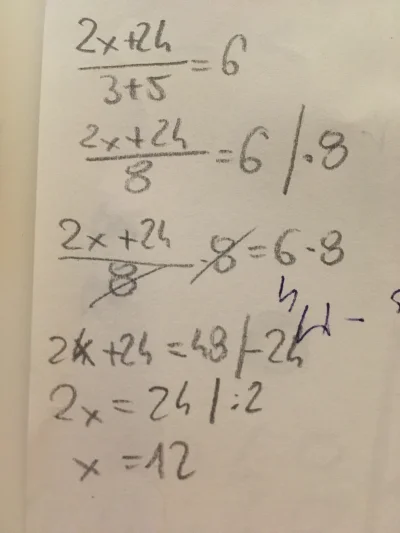 2x+24/3+5 = 6
2x+24/8 = 6 /·8
2x+24/8 ·8 = 6·8
2x+24 = 48 /-24
2x = 24 /:2
x = 12